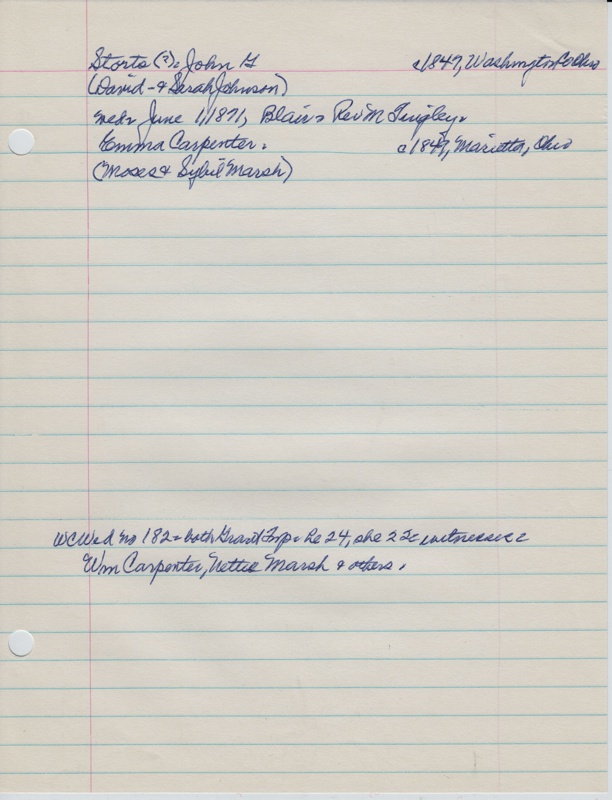 Storts (?), John G c1847, Washington Co Ohio
(David - & Sarah Johnson)
wed. June 1, 1871, Blair = Rev M Tingley.
Emma Carpenter. c1849, Marietta, Ohio
(Moses & Sybil Marsh)
WCWed No 182 = both Grant Twp. he 24, she 22 witnesses:
Wm Carpenter, Nettie Marsh & others.